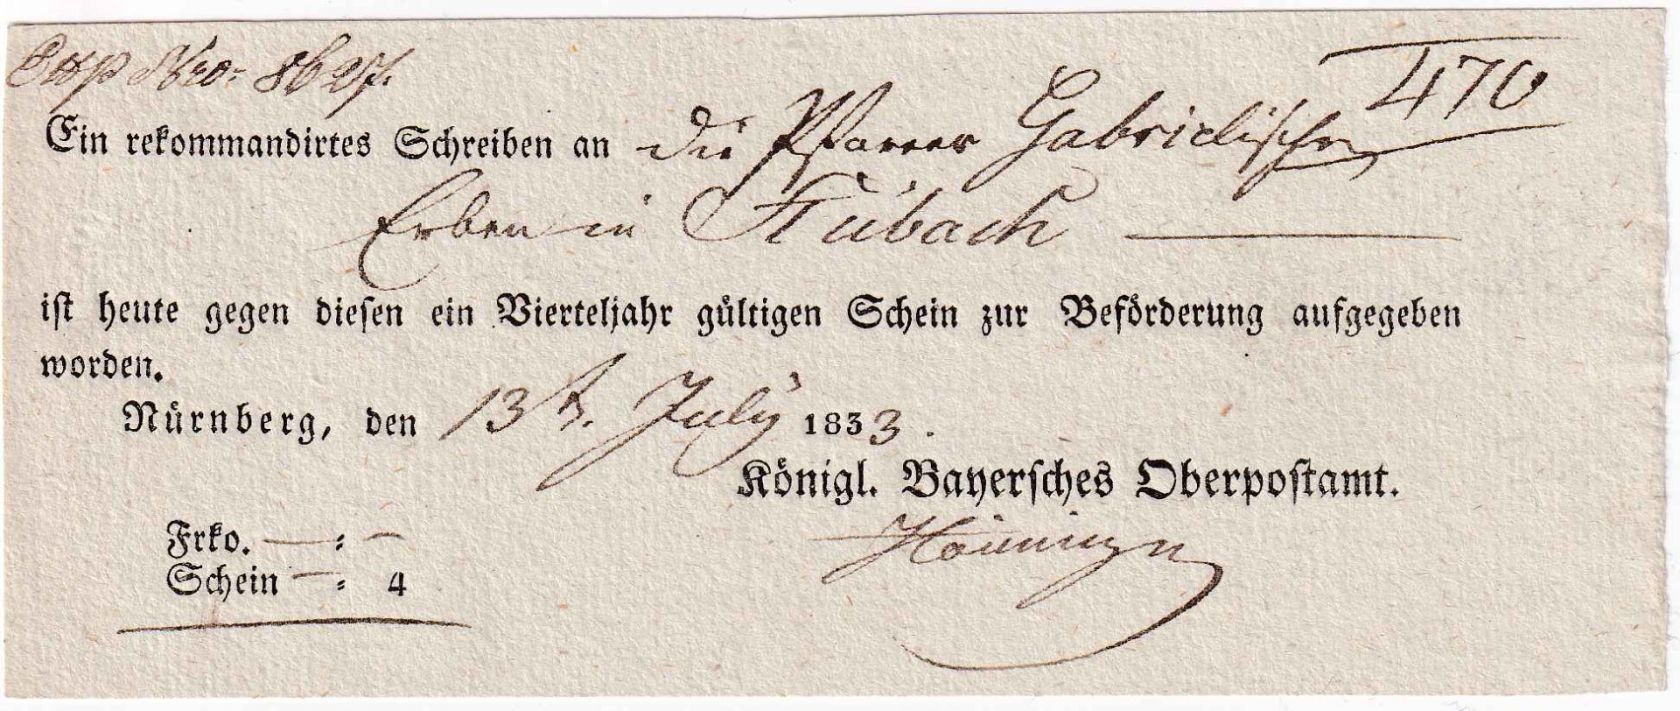 Exp Nro: 8627.
470
Ein rekommandirtes Schreiben an die Pfarrer Gabrielischen
Erben in Kübach
ist heute gegen diesen ein Vierteljahr gültigen Schein zur Beförderung aufgegeben
worden.
Nürnberg, den 13t. July 1833.
Königl. Bayersches Oberpostamt.
Frko. — : —
Schein — : 4